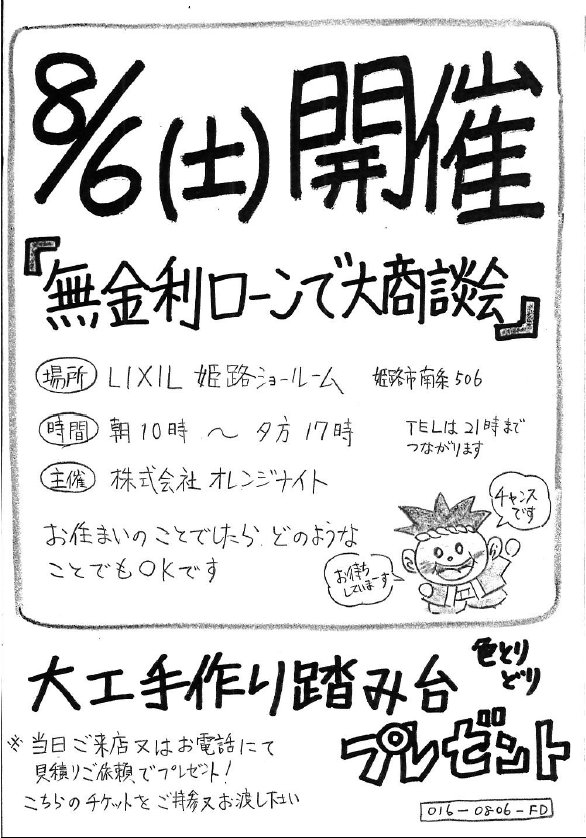 8/6(土)開催
『無金利ローンで大商談会』
場所 LIXIL 姫路ショールーム 姫路市南条506
時間 朝10時 〜 夕方17時 TELは21時まで
つながります
主催 株式会社 オレンジナイト
お住まいのことでしたら、どのような
ことでもOKです
チャンス
です
お待ち
していまーす
大工手作り踏み台 色とり
どり
プレゼント
※ 当日ご来店又はお電話にて
見積りご依頼でプレゼント!
こちらのチケットをご持参又お渡し下さい
016-0806-FD